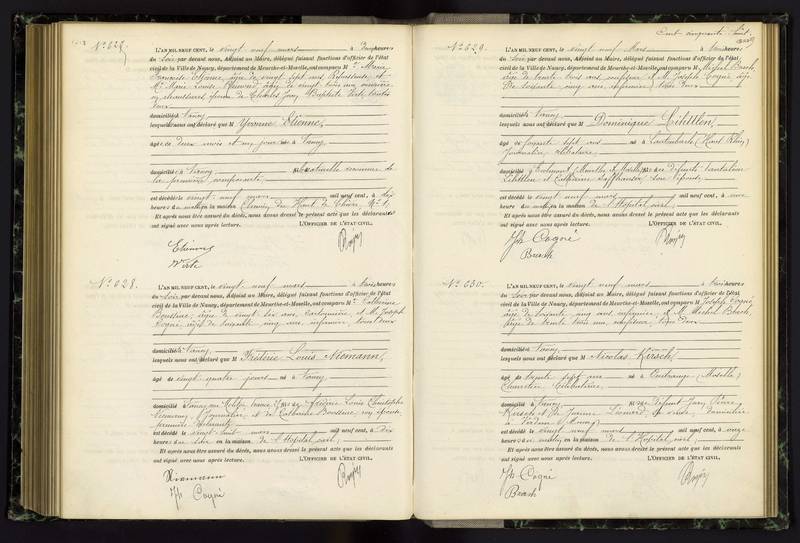 N° 627.
L'AN MIL NEUF CENT, le vingt neuf mars à trois heures
du Soir par devant nous, Adjoint au Maire, délégué faisant fonctions d'officier de l'état
civil de la Ville de Nancy, département de Meurthe-et-Moselle, ont comparu M Marie
Françoise Etienne âgée de vingt sept ans
Marie Louise âgée de vingt trois ans
en chaussures femme de Charles Jean Baptiste
domicilié à Nancy
lesquels nous ont déclaré que M Yvonne Etienne,
âgée de deux mois et un jour née à Nancy
domiciliée à Nancy fille naturelle
la première comparante,
est décédée vingt neuf mars mil neuf cent, à dix
heures du matin, en la maison Chemin du Haut de Chèvre, N° 1,
Et après nous être assuré du décès, nous avons dressé le présent acte que les déclarants
ont signé avec nous après lecture. L'OFFICIER DE L'ÉTAT CIVIL,
Etienne
N° 628.
L'AN MIL NEUF CENT, le vingt neuf mars à trois heures
du Soir par devant nous, Adjoint au Maire, délégué faisant fonctions d'officier de l'état
civil de la Ville de Nancy, département de Meurthe-et-Moselle, ont comparu M Catherine
âgée de vingt six ans et M. Joseph
Cogné, âgé de soixante cinq ans infirmier tous deux
domiciliés à Nancy,
lesquels nous ont déclaré que M Frédéric Louis Niemann,
âgé de vingt quatre jours né à Nancy
domicilié fils de Frédéric Louis Christophe
Niemann, journalier, et de Catherine
première déclarante
est décédé le vingt huit mars mil neuf cent, à dix
heures du soir en la maison de l'Hôpital civil,
Et après nous être assuré du décès, nous avons dressé le présent acte que les déclarants
ont signé avec nous après lecture. L'OFFICIER DE L'ÉTAT CIVIL,
Niemann
Jph Cogné
Cent cinquante huit
N° 629.
L'AN MIL NEUF CENT, le vingt neuf Mars à trois heures
du Soir par devant nous, Adjoint au Maire, délégué faisant fonctions d'officier de l'état
civil de la Ville de Nancy, département de Meurthe-et-Moselle, ont comparu M Michel Brash
âgé de trente trois ans et M. Joseph Cogné âgé
de soixante cinq ans, infirmier, tous deux
domiciliés à Nancy
lesquels nous ont déclaré que M Dominique
âgé de soixante sept ans né à Lautenbach (Haut Rhin)
Journalier, célibataire,
domicilié à fils de défunts
et Catherine son épouse,
est décédé le vingt neuf mars mil neuf cent, à onze
heures du matin, en la maison de l'Hôpital civil,
Et après nous être assuré du décès, nous avons dressé le présent acte que les déclarants
ont signé avec nous après lecture. L'OFFICIER DE L'ÉTAT CIVIL,
Jph Cogné
Brash
N° 630.
L'AN MIL NEUF CENT, le vingt neuf mars à trois heures
du Soir par devant nous, Adjoint au Maire, délégué faisant fonctions d'officier de l'état
civil de la Ville de Nancy, département de Meurthe-et-Moselle, ont comparu M Joseph Cogné
âgé de soixante cinq ans infirmier, et M. Michel Brash,
âgé de trente trois ans tous deux
domiciliés à Nancy
lesquels nous ont déclaré que M Nicolas Kirsch,
âgé de trente sept ans né à (Moselle)
célibataire,
domicilié à Nancy fils de défunt Jean Pierre
Kirsch et de Jeanne sa veuve, domiciliée
à Verdun (Meuse)
est décédé le vingt neuf mars mil neuf cent, à onze
heures du matin, en la maison de l'Hôpital civil,
Et après nous être assuré du décès, nous avons dressé le présent acte que les déclarants
ont signé avec nous après lecture. L'OFFICIER DE L'ÉTAT CIVIL,
Jph Cogné
Brash